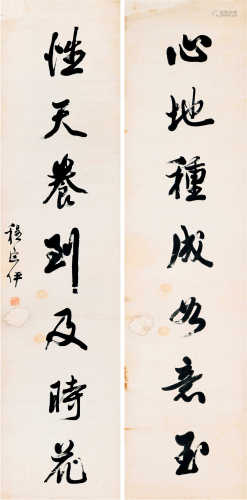 心地種成如意玉
性天養到及時花
程